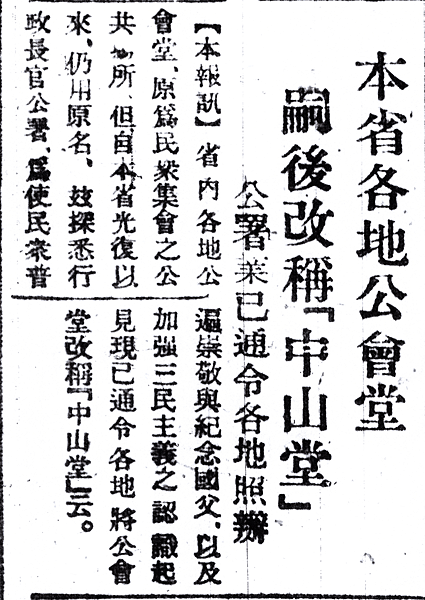 本省各地公會堂
嗣後改稱「中山堂」
公署業已通令各地照辦
【本報訊】省內各地公
會堂、原爲民衆集會之公
共場所、但自本省光復以
來、仍用原名、玆探悉行
政長官公署、爲使民衆普
遍崇敬與紀念國父、以及
加強三民主義之認識起
見現已通令各地將公會
堂改稱「中山堂」云。